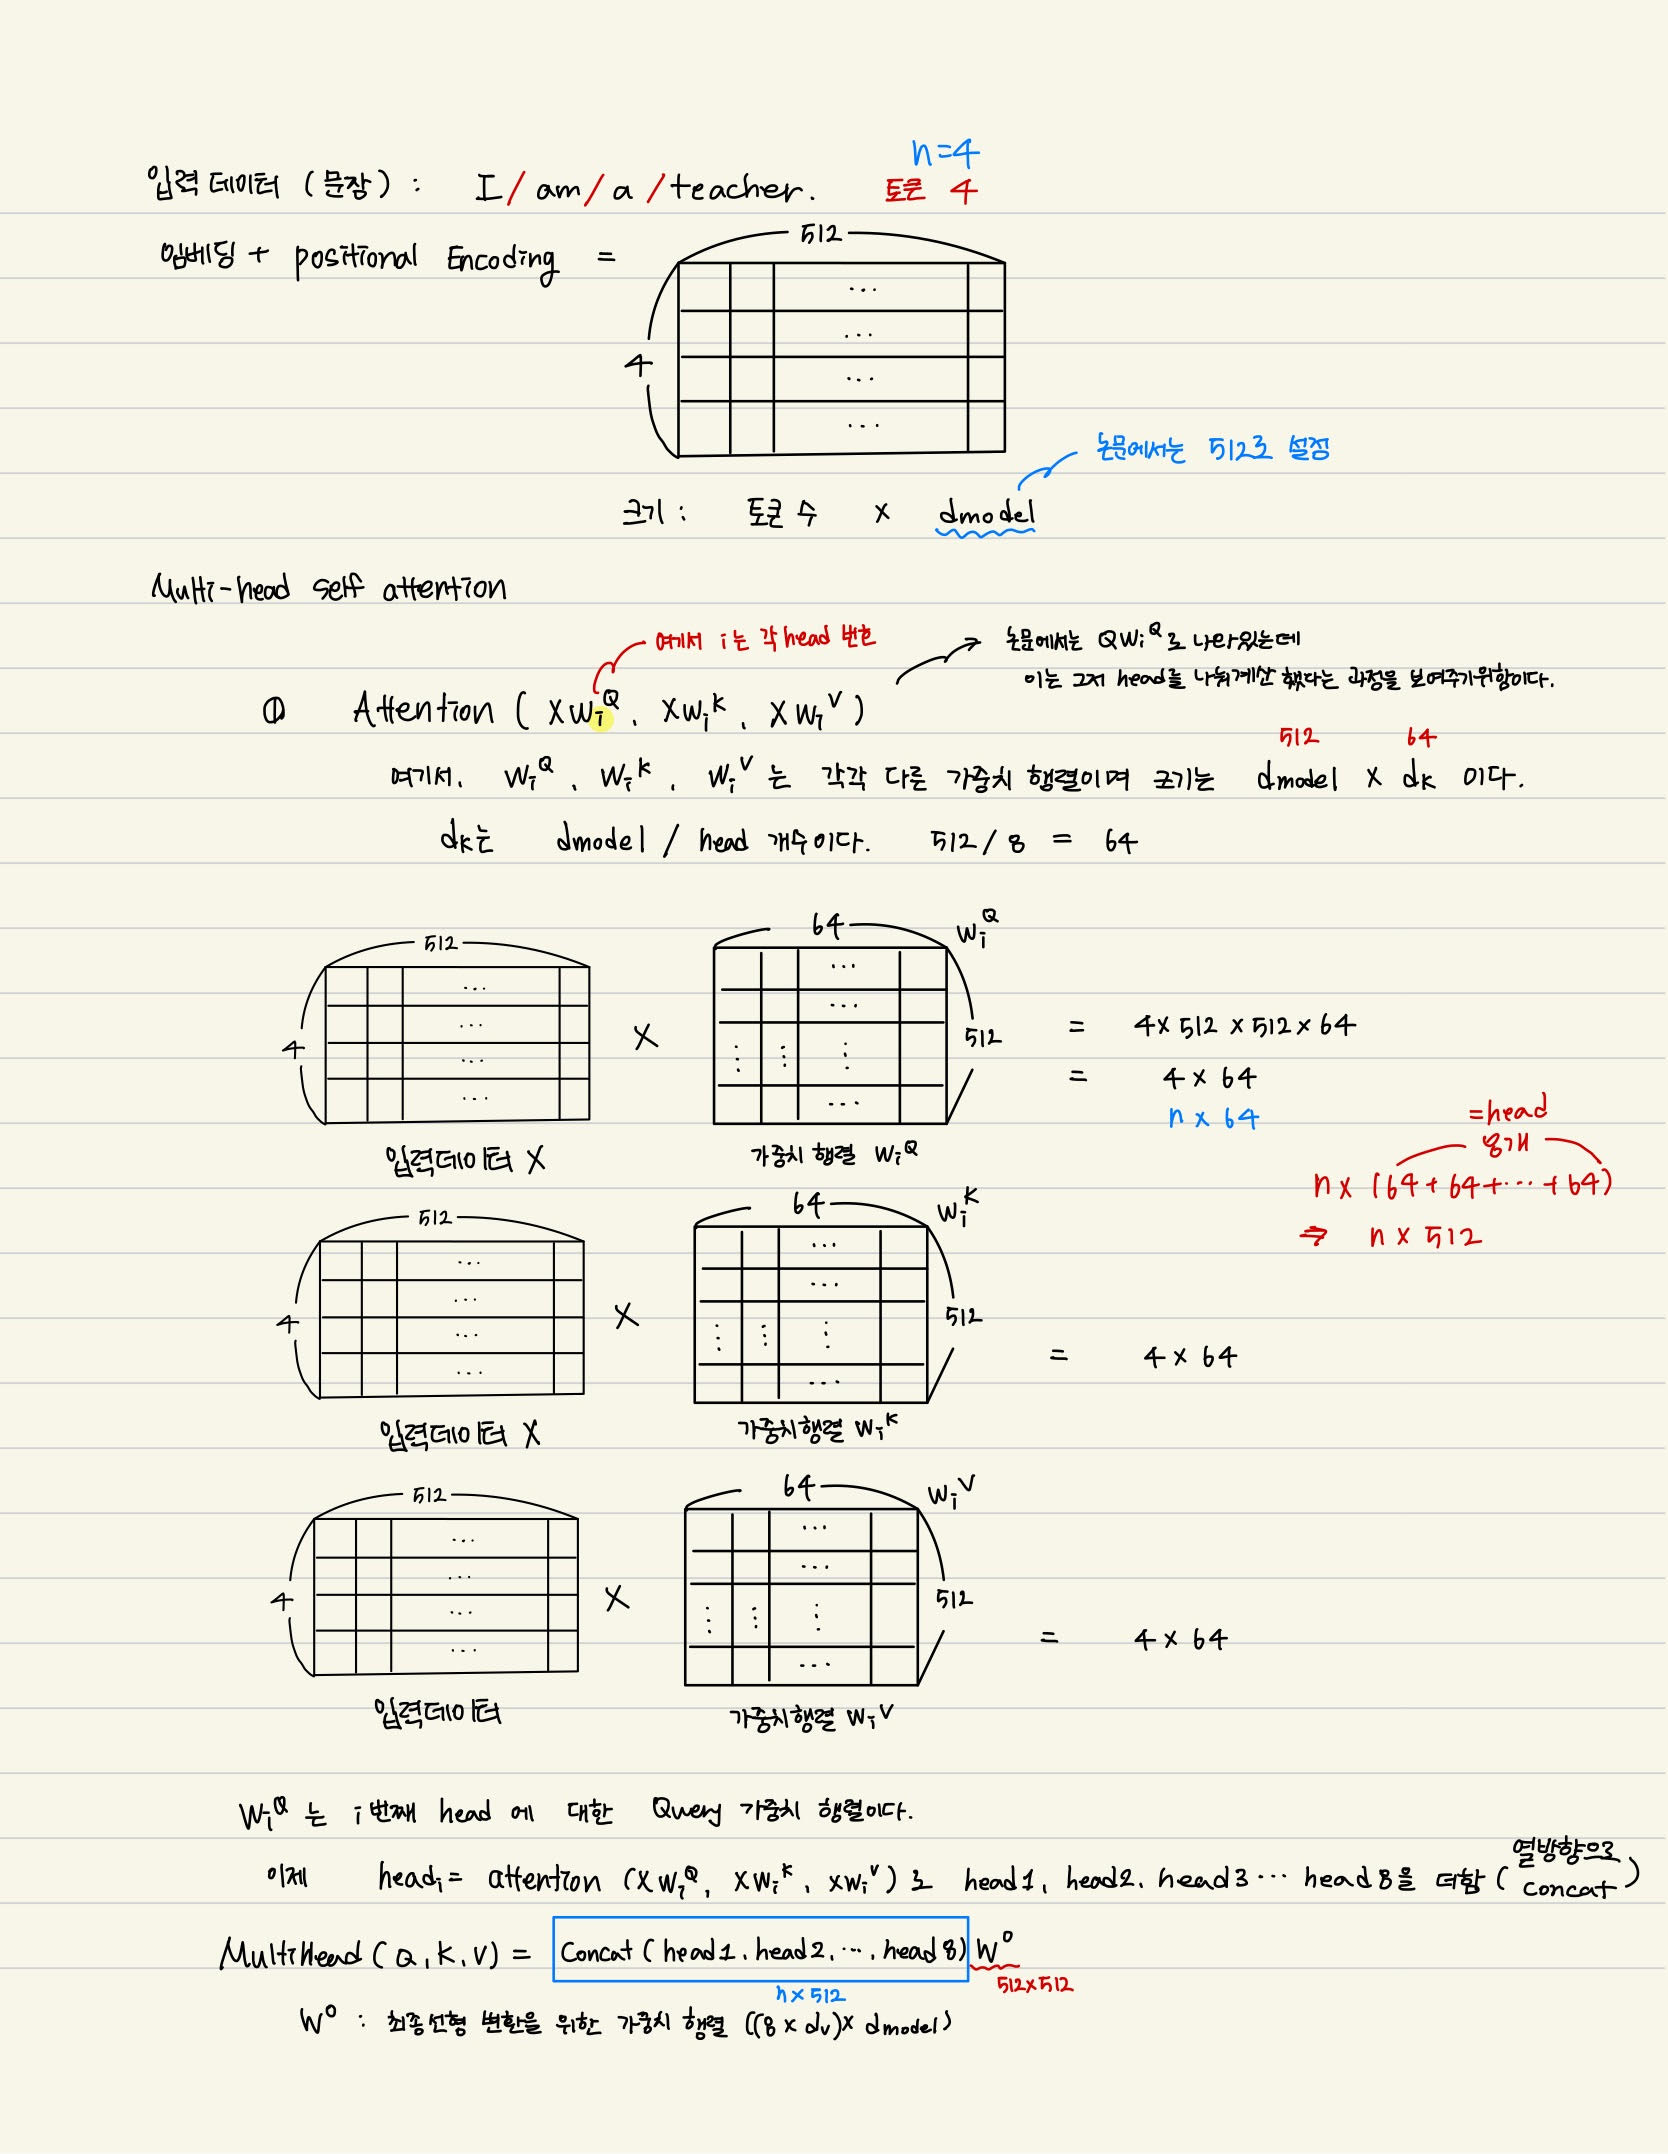 n=4
입력 데이터 (문장) : I / am / a / teacher. 토큰 4
임베딩 + positional Encoding =
512
...
...
4
...
...
논문에서는 512로 설정
크기 : 토큰 수 × dmodel
Multi-head self attention
여기서 i는 각 head 번호
논문에서는 QWᵢ^Q로 나와있는데
이는 그저 head를 나눠계산 했다는 과정을 보여주기위함이다.
① Attention ( XWᵢ^Q, XWᵢ^K, XWᵢ^V )
512 64
여기서, Wᵢ^Q, Wᵢ^K, Wᵢ^V 는 각각 다른 가중치 행렬이며 크기는 dmodel × dK 이다.
dK는 dmodel / head 개수이다. 512 / 8 = 64
512 64 Wᵢ^Q
4 × 512 = 4 × 512 × 512 × 64
= 4 × 64
n × 64
입력데이터 X 가중치 행렬 Wᵢ^Q
=head
8개
n × (64 + 64 + ... + 64)
⇒ n × 512
512 64 Wᵢ^K
4 × 512 = 4 × 64
입력데이터 X 가중치행렬 Wᵢ^K
512 64 Wᵢ^V
4 × 512 = 4 × 64
입력데이터 가중치행렬 Wᵢ^V
Wᵢ^Q 는 i 번째 head 에 대한 Query 가중치 행렬이다.
이제 headᵢ = attention (XWᵢ^Q, XWᵢ^K, XWᵢ^V) 로 head1, head2, head3 ... head8을 더함 (열방향으로 concat)
MultiHead (Q, K, V) = Concat (head1, head2, ..., head8) W^O
n × 512 512×512
W^O : 최종선형 변환을 위한 가중치 행렬 ((8 × dv) × dmodel)